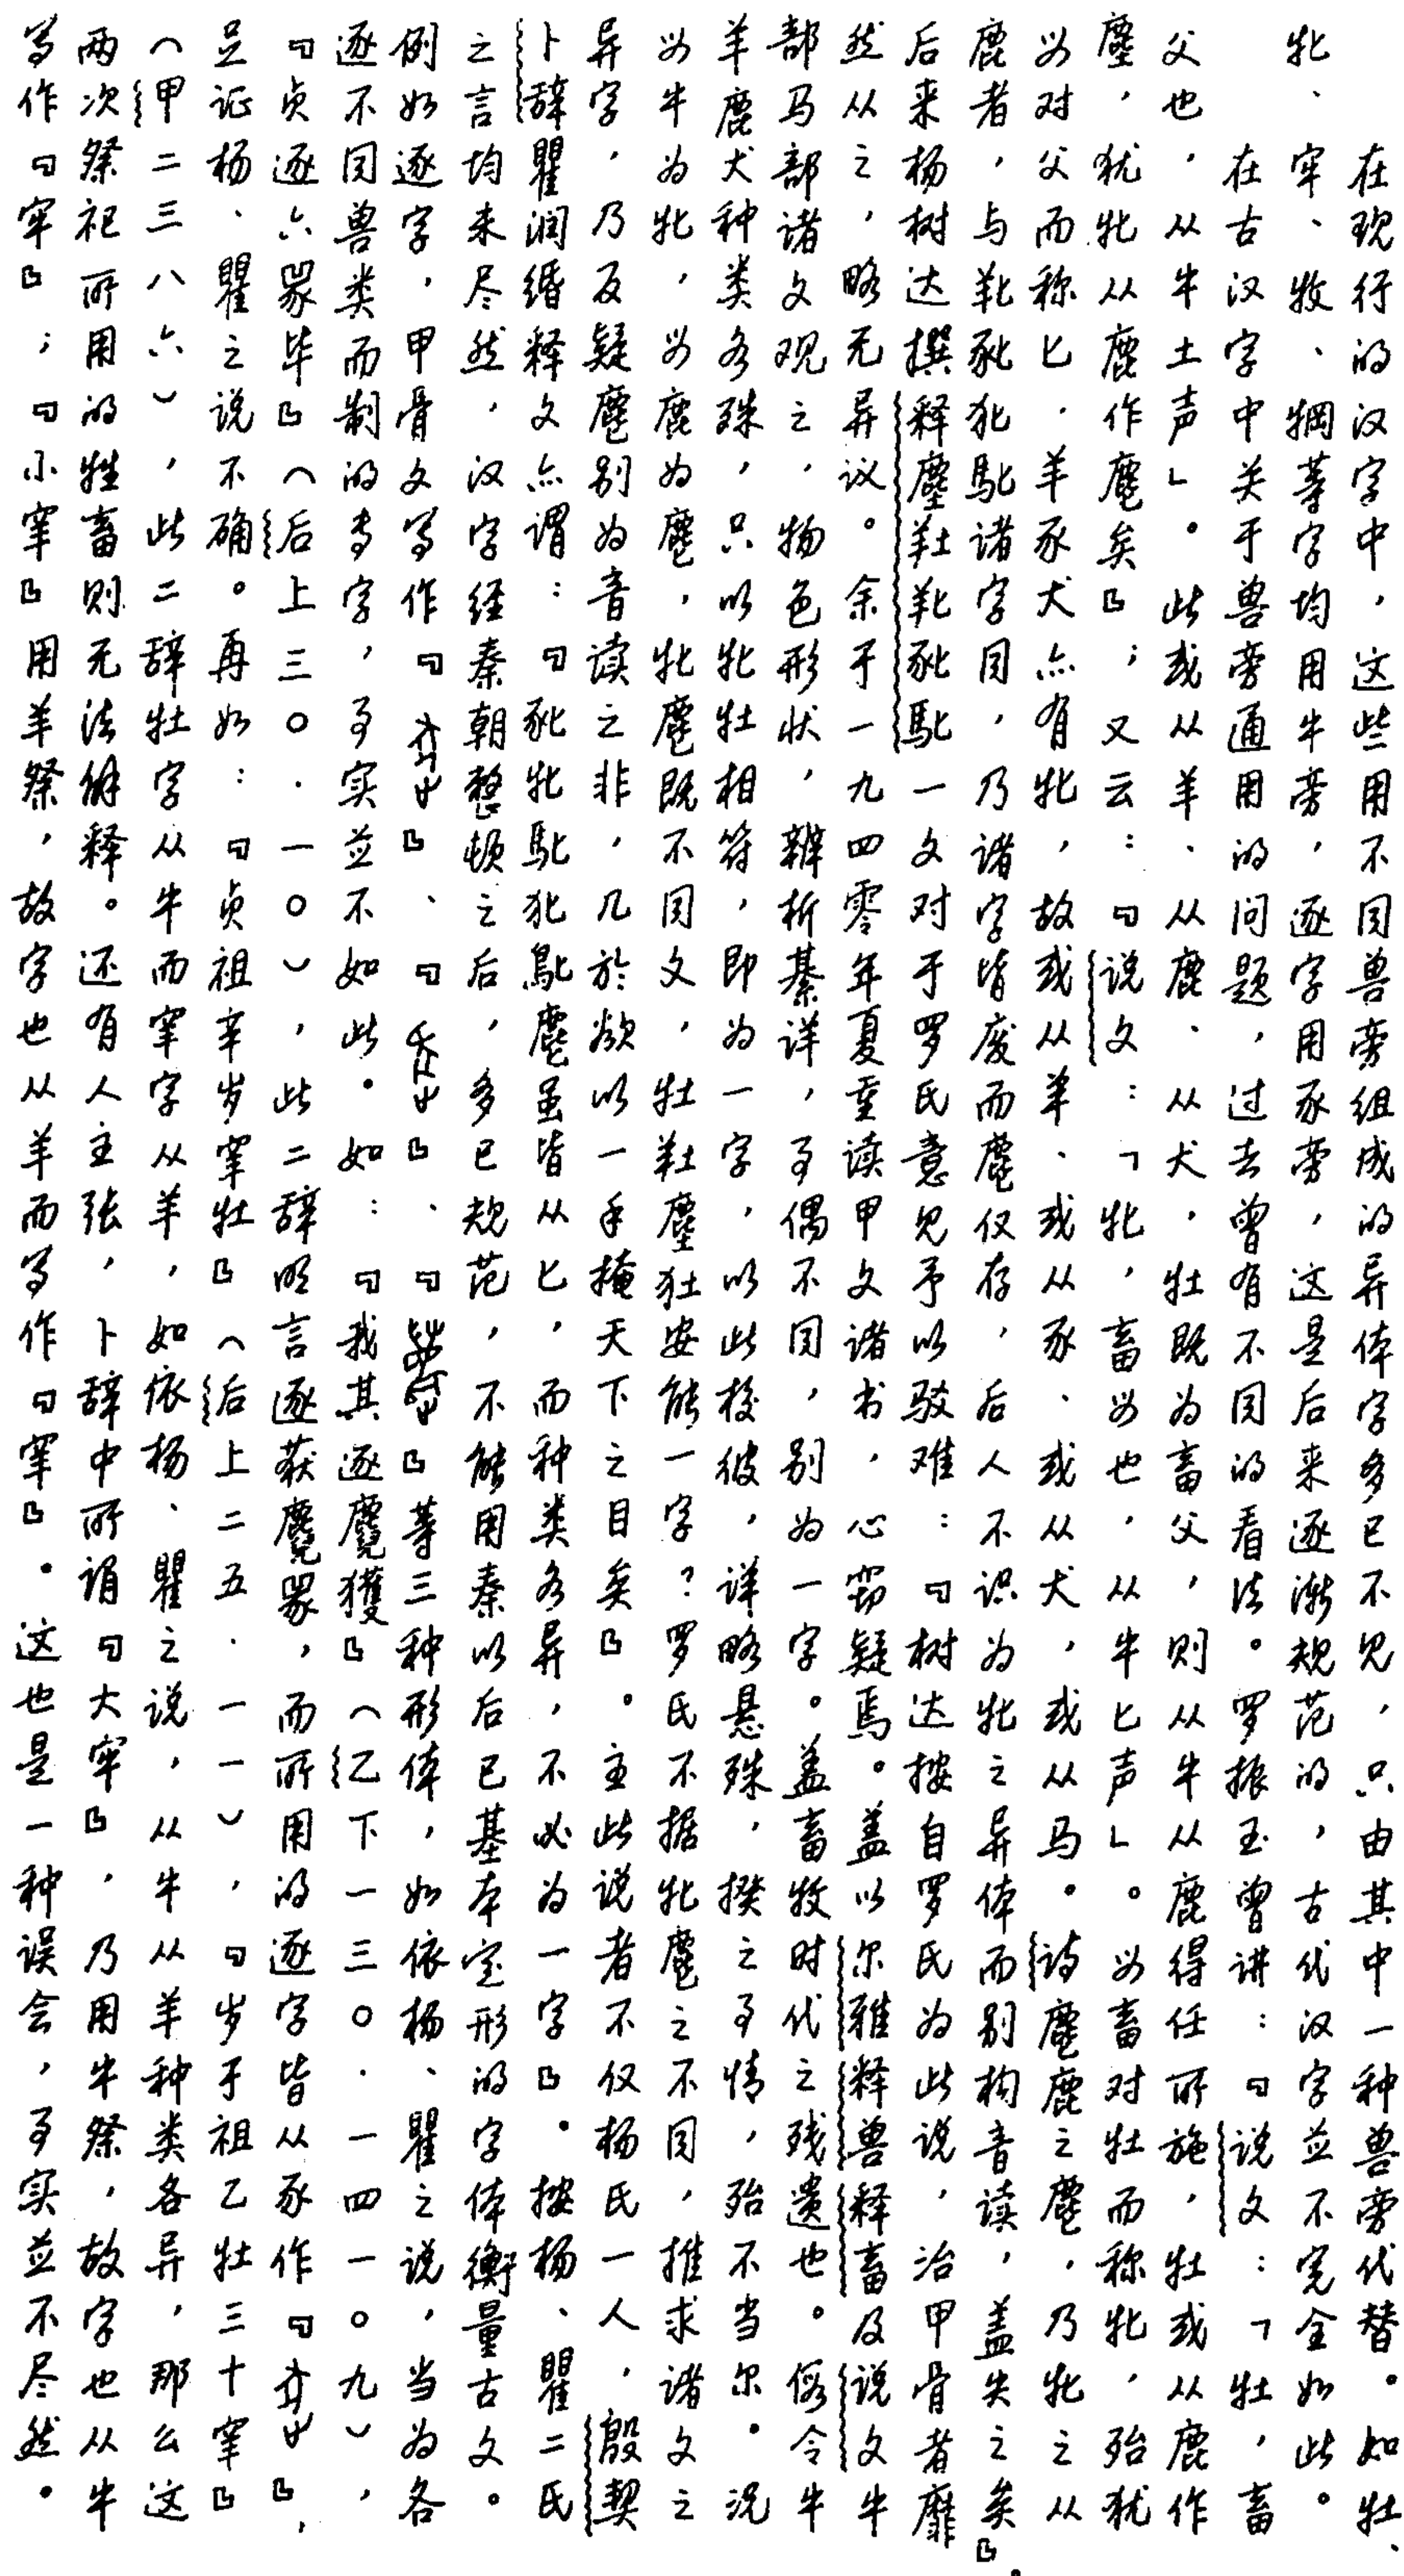 在现行的汉字中，这些用不同兽旁组成的异体字多已不见，只由其中一种兽旁代替。如牡、
牝、牢、牧、犅等字均用牛旁，逐字用豕旁，这是后来逐渐规范的，古代汉字並不完全如此。
在古汉字中关于兽旁通用的问题，过去曾有不同的看法。罗振玉曾讲：『说文：「牡，畜
父也，从牛土声」。此或从羊、从鹿、从犬，牡既为畜父，则从牛从鹿得任所施，牡或从鹿作
麈，犹牝从鹿作麀矣』；又云：『说文：「牝，畜母也，从牛匕声」。母畜对牡而称牝，殆犹
母对父而称匕．羊豕犬亦有牝，故或从羊、或从豕、或从犬，或从马。诗麀鹿之麀，乃牝之从
鹿者，与诸字同，乃诸字皆废而麀仅存，后人不识为牝之异体而别构音读，盖失之矣』。
后来杨树达撰释一文对于罗氏意见予以驳难：『树达按自罗氏为此说，治甲骨者靡
然从之，略无异议。余于一九四零年夏重读甲文诸书，心窃疑焉。盖以尔雅释兽释畜及说文牛
部马部诸文观之，物色形状，辨析綦详，事偶不同，别为一字。盖畜牧时代之残遗也。倘令牛
羊鹿犬种类各殊，只以牝牡相符，即为一字，以此校彼，详略悬殊，揆之事情，殆不当尔。况
母牛为牝，母鹿为麀，牝麀既不同文，牡安能一字？罗氏不据牝麀之不同，推求诸文之
异字，乃反疑麀别为音读之非，几於欲以一手掩天下之目矣』。主此说者不仅杨氏一人，殷契
卜辞瞿润缗释文亦谓：『牝麀虽皆从匕，而种类各异，不必为一字』。按杨、瞿二氏
之言均未尽然，汉字经秦朝整顿之后，多已规范，不能用秦以后已基本定形的字体衡量古文。
例如逐字，甲骨文写作『』、『』、『』等三种形体，如依杨、瞿之说，当为各
逐不同兽类而制的专字，事实並不如此。如：『我其逐麑獲』（乙下一三〇．一四一〇九），
『贞逐六毕』（后上三〇．一〇），此二辞明言逐获麑，而所用的逐字皆从豕作『』，
足证杨、瞿之说不确。再如：『贞祖辛岁牡』（后上二五．一一），『岁于祖乙牡三十』
（甲二三八六），此二辞牡字从牛而字从羊，如依杨、瞿之说，从牛从羊种类各异，那么这
两次祭祀所用的牲畜则无法解释。还有人主张，卜辞中所谓『大牢』，乃用牛祭，故字也从牛
写作『牢』；『小』用羊祭，故字也从羊而写作『』。这也是一种误会，事实並不尽然。